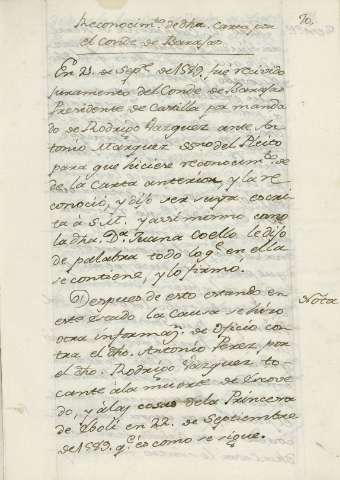 70,
Reconocim.to de dha. Carta por
el Conde de Barajas.
En 21. de Sep.e de 1589. fue recivido
juramento del Conde de Barajas
Presidente de Castilla por manda
do de Rodrigo Vazquez ante An-
tonio Marquez ssno del Pleito
para que hiciese reconocim.to de
de la Carta anterior, y la re
conoció, y dijo ser suya escri
ta à S. M. y assi mismo como
la dha. D.a Juana Coello le dijo
de palabra todo lo q.e en ella
se contiene, y lo firmó.
Despues de esto estando en
este estado la Causa se hizo
Nota
otra informaz.n de Oficio con-
tra el dho. Antonio Perez, por
el dho. Rodrigo Vazquez to-
cante à la muerte de Escove
do, y à las cosas de la Princesa
de Eboli en 22. de Septiembre
de 1589. q.e es como se sigue.